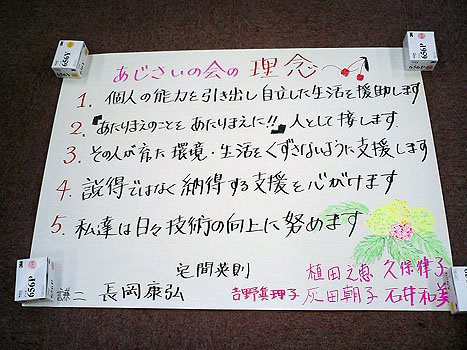 あじさいの会の理念
1. 個人の能力を引き出し自立した生活を援助します
2. 『あたりまえのことをあたりまえに!!』人として接します
3. その人が育た環境・生活をくずさないように支援します
4. 説得ではなく納得する支援を心がけます
5. 私達は日々技術の向上に努めます
宅間英則 植田之恵 久保律子
長岡康弘 吉野眞理子 灰田朝子 石井和美
656Y
656P
656P